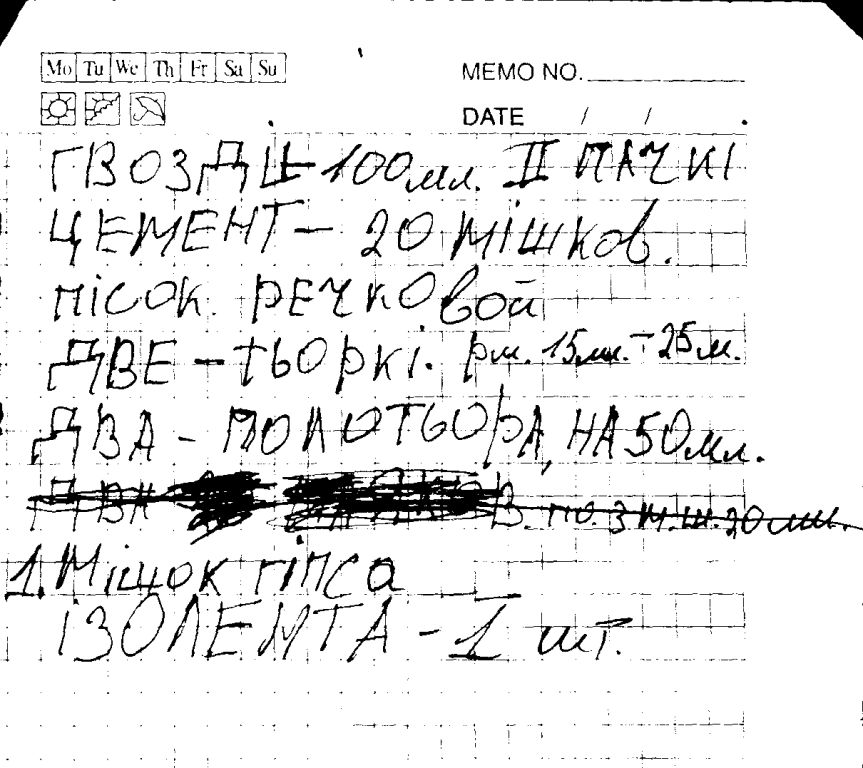 Mo Tu We Th Fr Sa Su
MEMO NO.
DATE / /
ГВОЗДІ - 100мл. II ПАЧКІ
ЦЕМЕНТ - 20 мішков.
пісок. РЕЧКОВОЙ
ДВЕ - тьоркі. рм. 15мм. - 25м.
ДВА - ПОЛОТЬОРА, НА 50мл.
ДВА В. по. 3 м. ш. 20мм.
1. Мішок гіпса
ІЗОЛЕНТА - 1 шт.